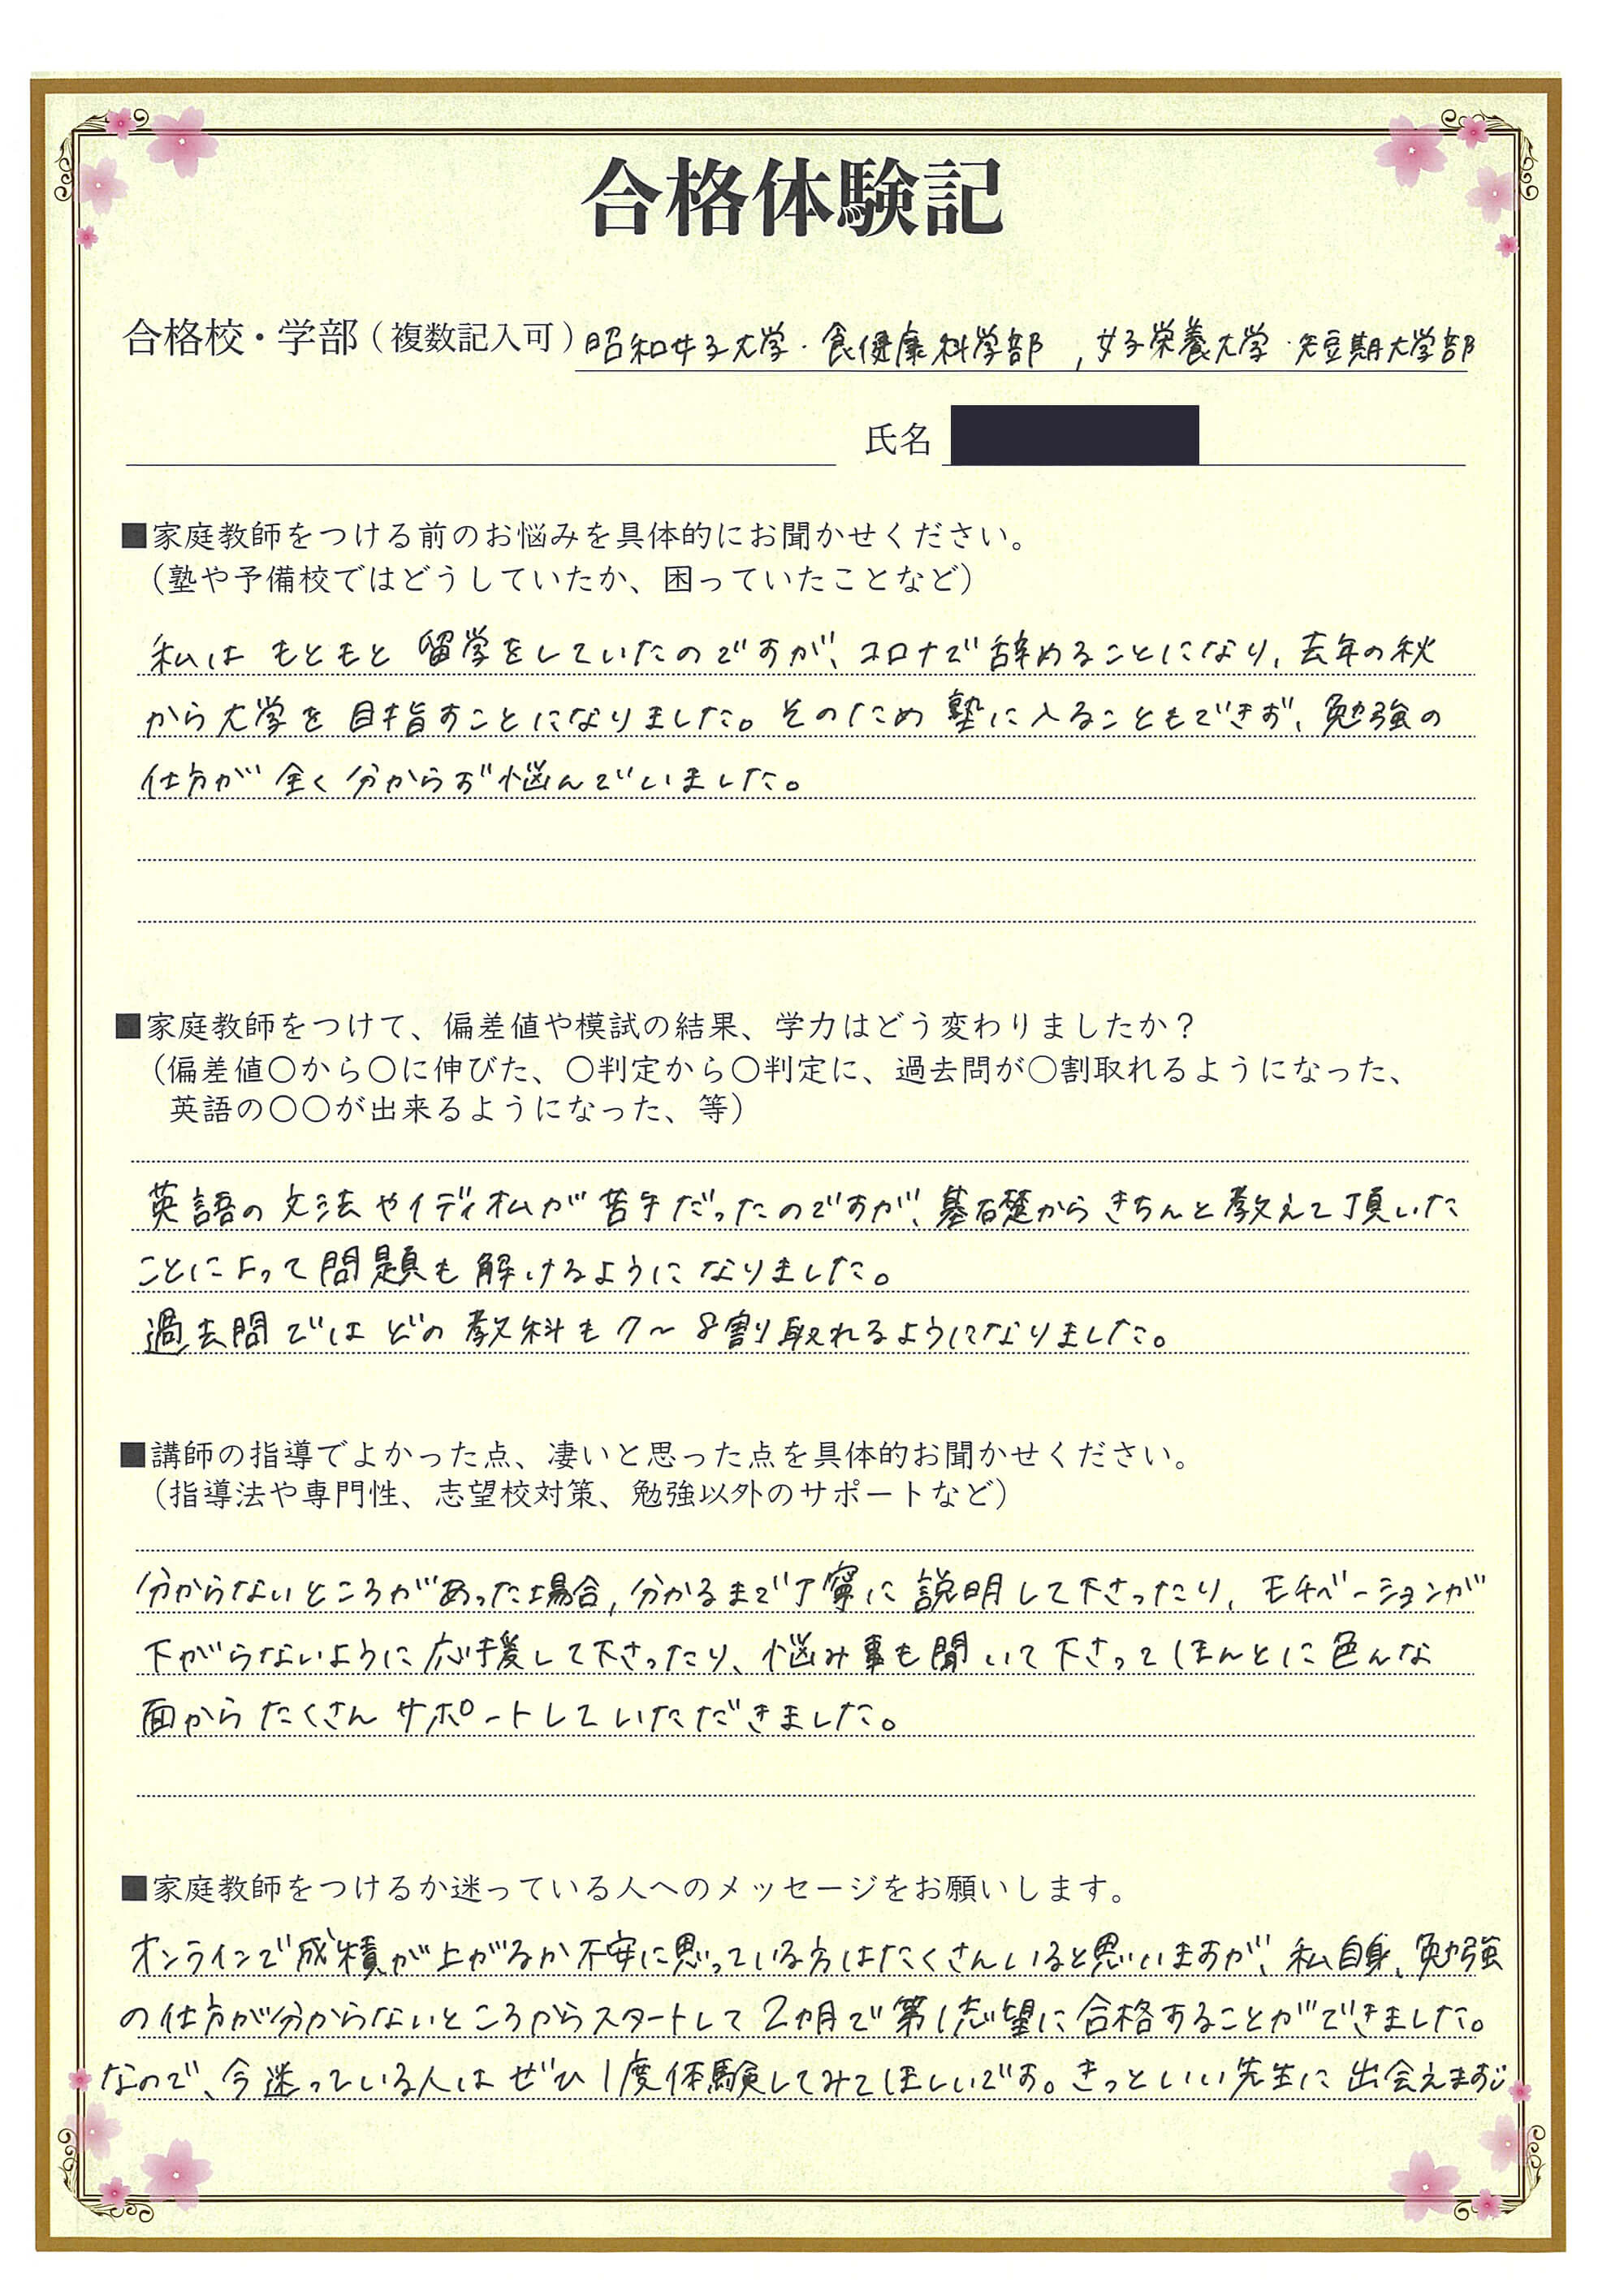 合格体験記
合格校・学部（複数記入可）昭和女子大学・食健康科学部 , 女子栄養大学・短期大学部
氏名
■家庭教師をつける前のお悩みを具体的にお聞かせください。
（塾や予備校ではどうしていたか、困っていたことなど）
私は もともと 留学をしていたのですが、コロナで辞めることになり、去年の秋
から大学を目指すことになりました。そのため 塾に入ることもできず、勉強の
仕方が 全く分からず悩んでいました。
■家庭教師をつけて、偏差値や模試の結果、学力はどう変わりましたか？
（偏差値〇から〇に伸びた、〇判定から〇判定に、過去問が〇割取れるようになった、
英語の〇〇が出来るようになった、等）
英語の文法やイディオムが苦手だったのですが、基礎からきちんと教えて頂いた
ことによって問題も解けるようになりました。
過去問ではどの教科も7～8割取れるようになりました。
■講師の指導でよかった点、凄いと思った点を具体的お聞かせください。
（指導法や専門性、志望校対策、勉強以外のサポートなど）
分からないところがあった場合, 分かるまで丁寧に説明して下さったり、モチベーションが
下がらないように応援して下さったり、悩み事も聞いて下さってほんとに色んな
面からたくさんサポートしていただきました。
■家庭教師をつけるか迷っている人へのメッセージをお願いします。
オンラインで成績が上がるか不安に思っている方はたくさんいると思いますが、私自身、勉強
の仕方が分からないところからスタートして2カ月で第1志望に合格することができました。
なので、今迷っている人はぜひ1度体験してみてほしいです。きっといい先生に出会えます。